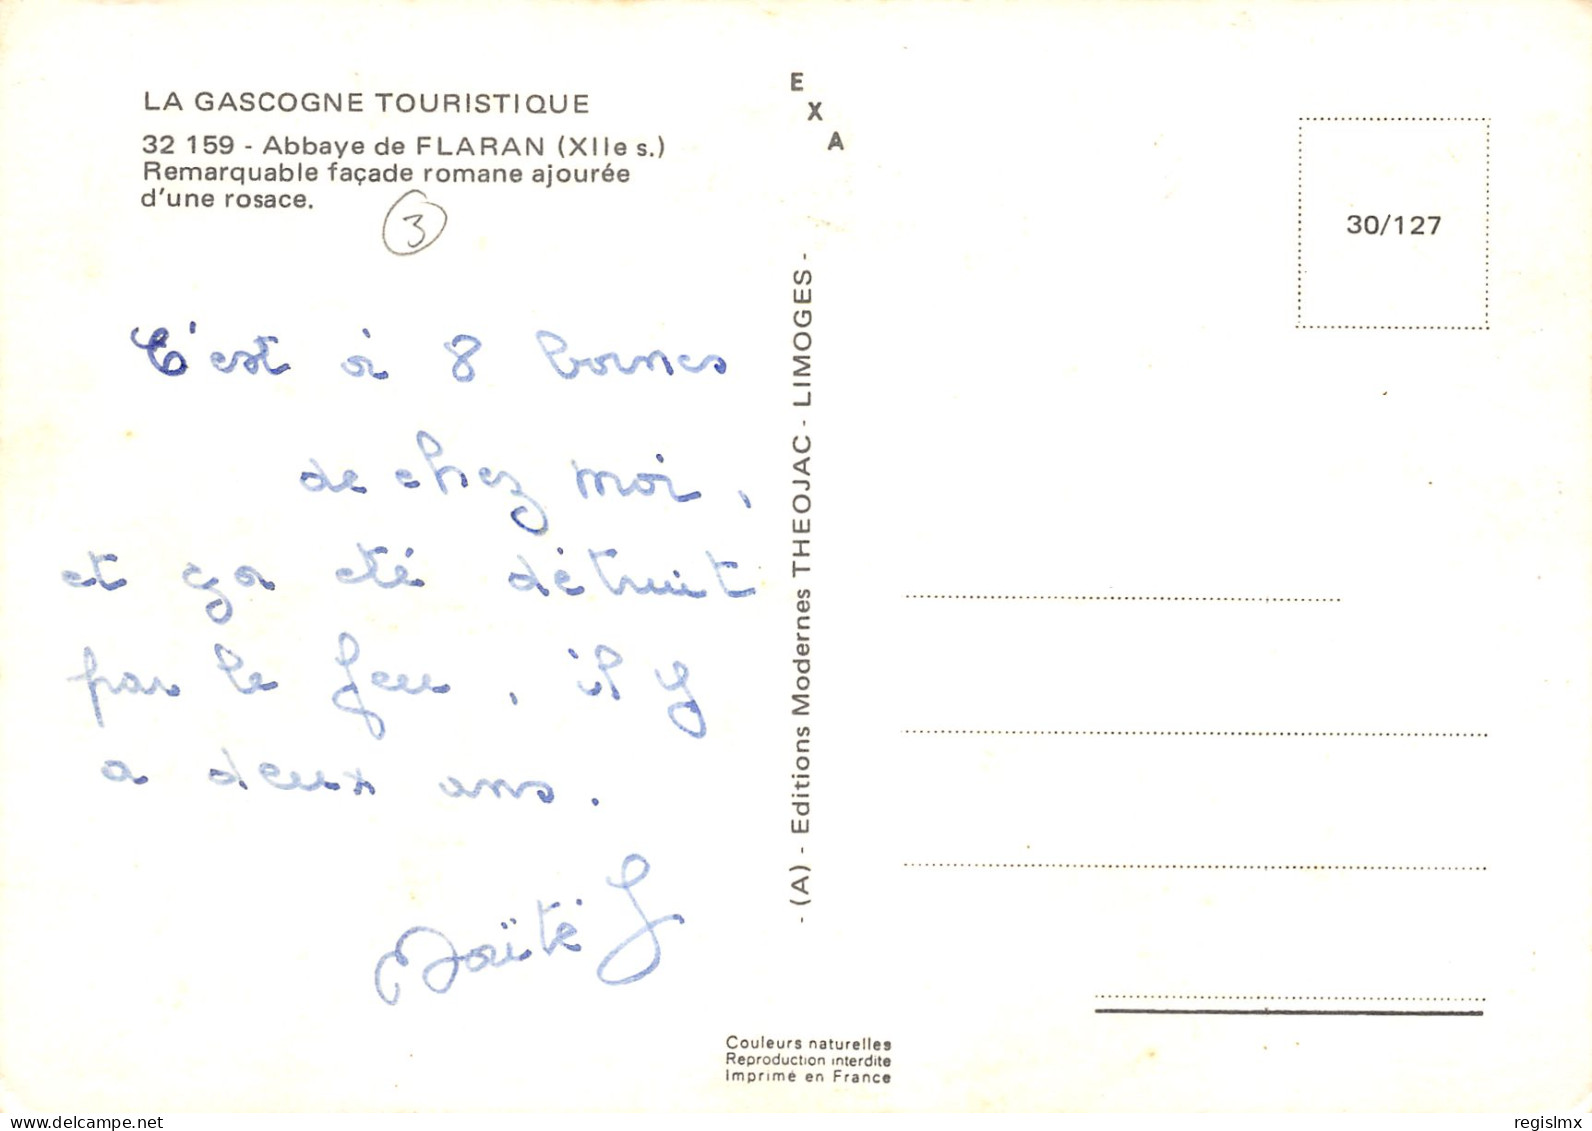 LA GASCOGNE TOURISTIQUE
32 159 - Abbaye de FLARAN (XIIe s.)
Remarquable façade romane ajourée
d'une rosace.
3
C'est à 8 bornes
de chez moi,
et ça été détruit
par le feu, il y
a deux ans.
Maïté J
E
X
A
- (A) - Editions Modernes THEOJAC - LIMOGES -
30/127
Couleurs naturelles
Reproduction interdite
Imprimé en France
regislmx